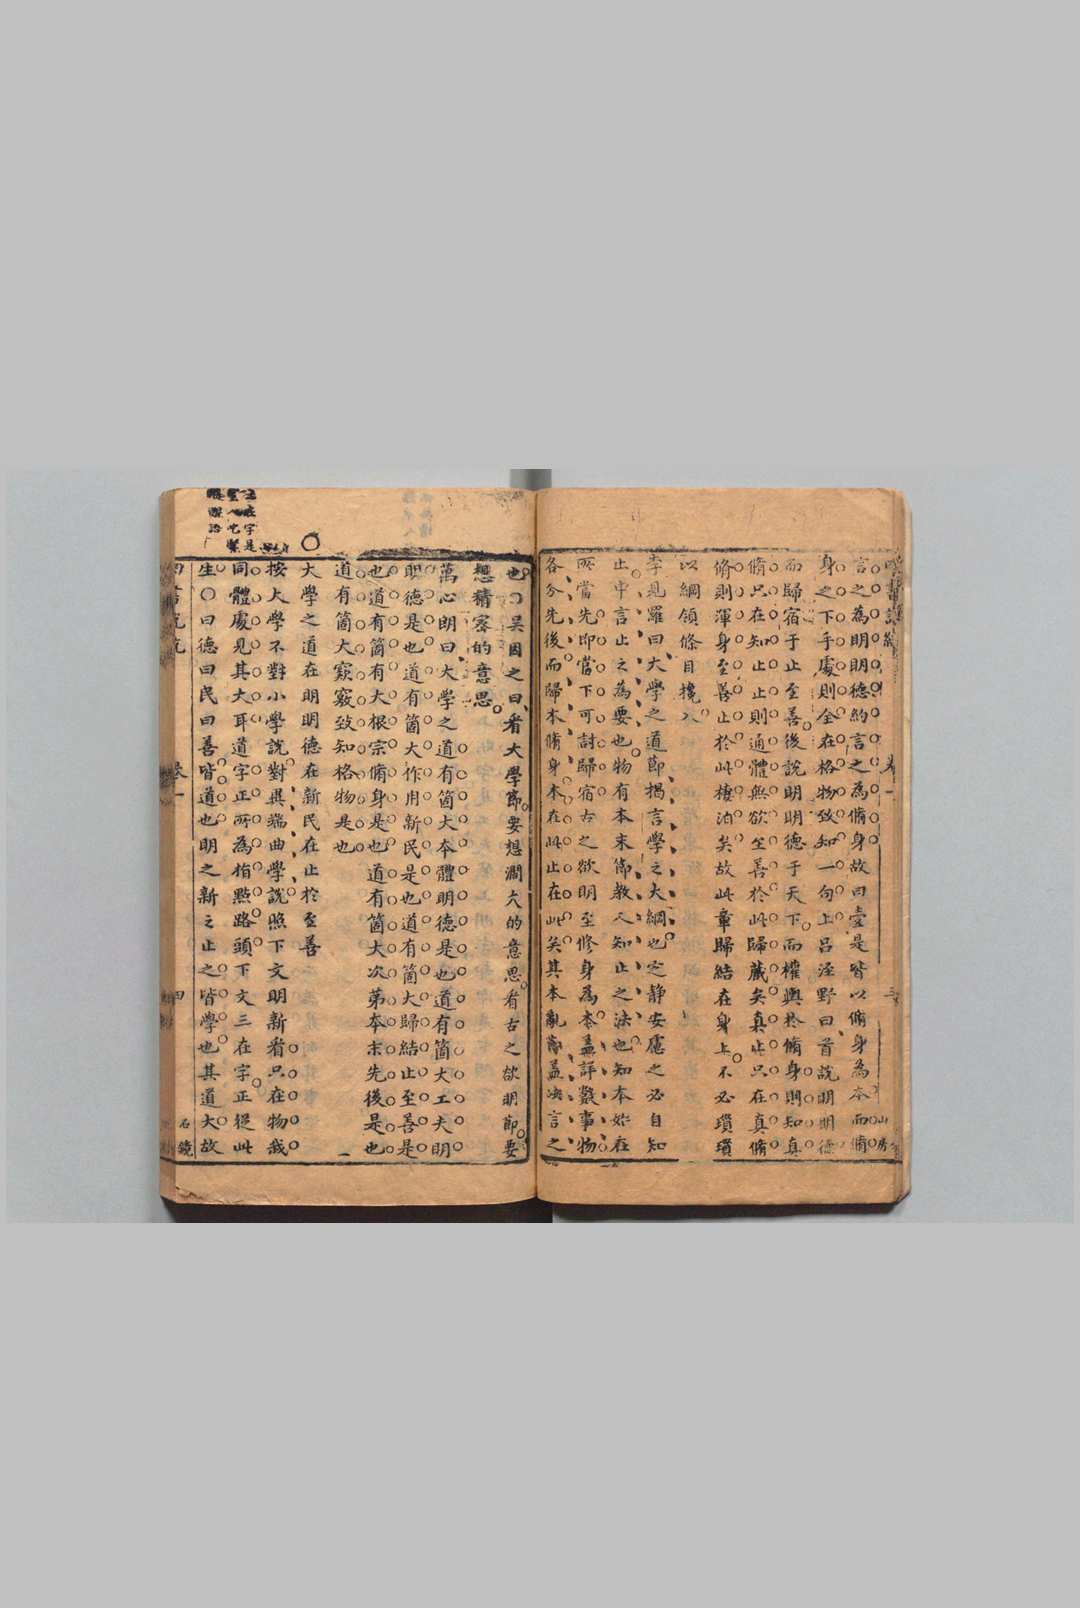 言之為明明德約言之為脩身故曰壹是皆以脩身為本而脩
身之下手處則全在格物致知一句上呂涇野曰首說明明德
而歸宿于止至善後說明明德于天下而權輿於脩身則知真
脩只在知止止則通體無欲至善於此歸藏矣真止只在真脩
脩則渾身至善止於此棲泊矣故此章歸結在身上不必瑣瑣
以綱領條目攙入
李見羅曰大學之道節揭言學之大綱也定靜安慮之必自知
止中言止之為要也物有本末節教人知止之法也知本始在
所當先即當下可討歸宿古之欲明至修身為本蓋詳數事物
各分先後而歸本脩身本在此止在此矣其本亂節蓋決言之
山房
也〇吳因之曰看大學節要想濶大的意思看古之欲明節要
想精密的意思
萬心朗曰大學之道有箇大本體明德是也道有箇大工夫明
明德是也道有箇大作用新民是也道有箇大歸結止至善是
也道有箇大根宗脩身是也道有箇大次第本末先後是也
道有箇大窾竅致知格物是也
大學之道在明明德在新民在止於至善
按大學不對小學說對異端曲學說照下文明新看只在物我
同體處見其大耳道字正所為指點路頭下文三在字正從此
生〇曰德曰民曰善皆道也明之新之止之皆學也其道大故
卷一
四
石鏡